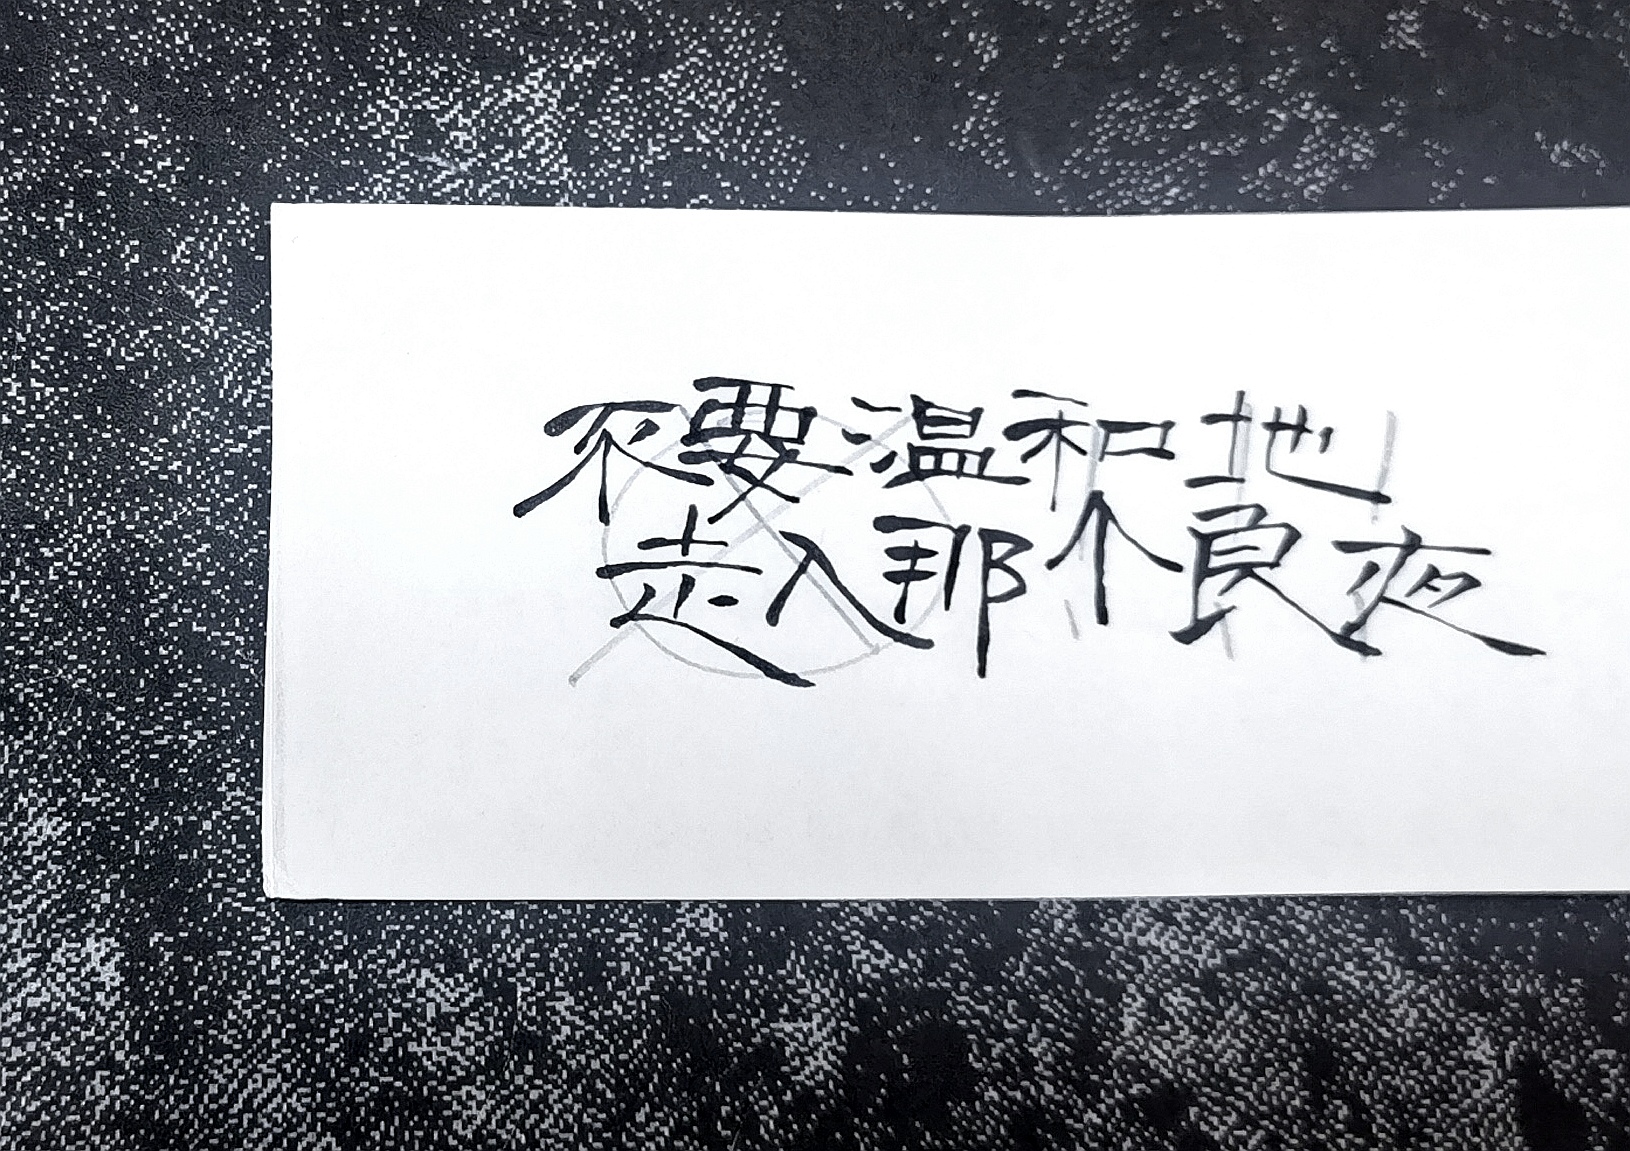 不要温和地
走入那个良夜